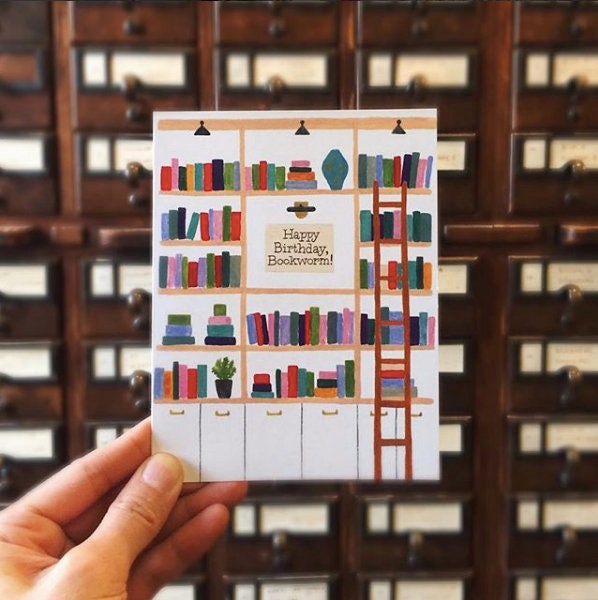 Happy
Birthday,
Bookworm!